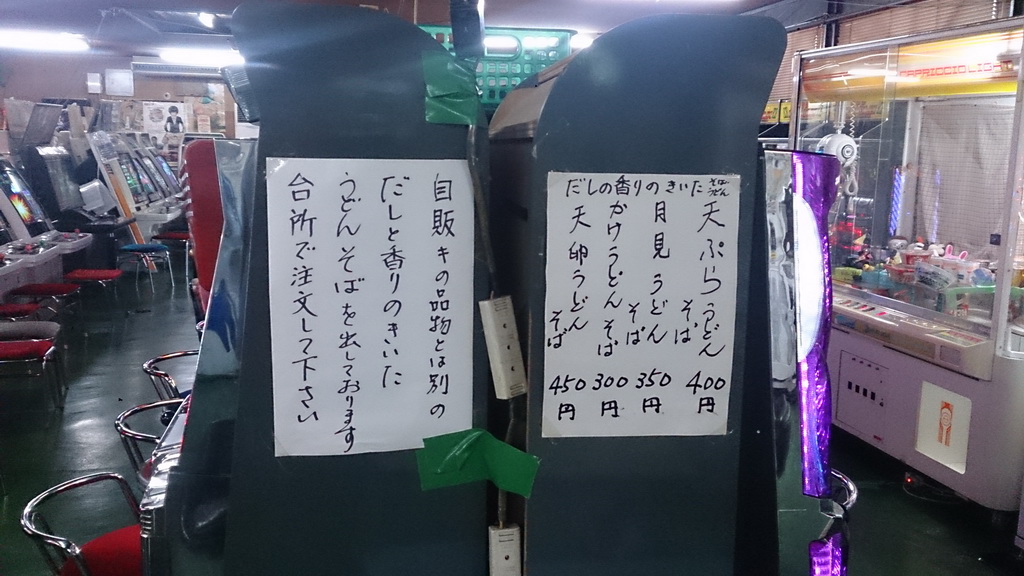 自販キの品物とは別の
だしと香りのきいた
うどんそばを出しております
台所で注文して下さい
だしの香りのきいた
天ぷらうどん そば 400円
月見うどん そば 350円
かけうどん そば 300円
天卵うどん そば 450円